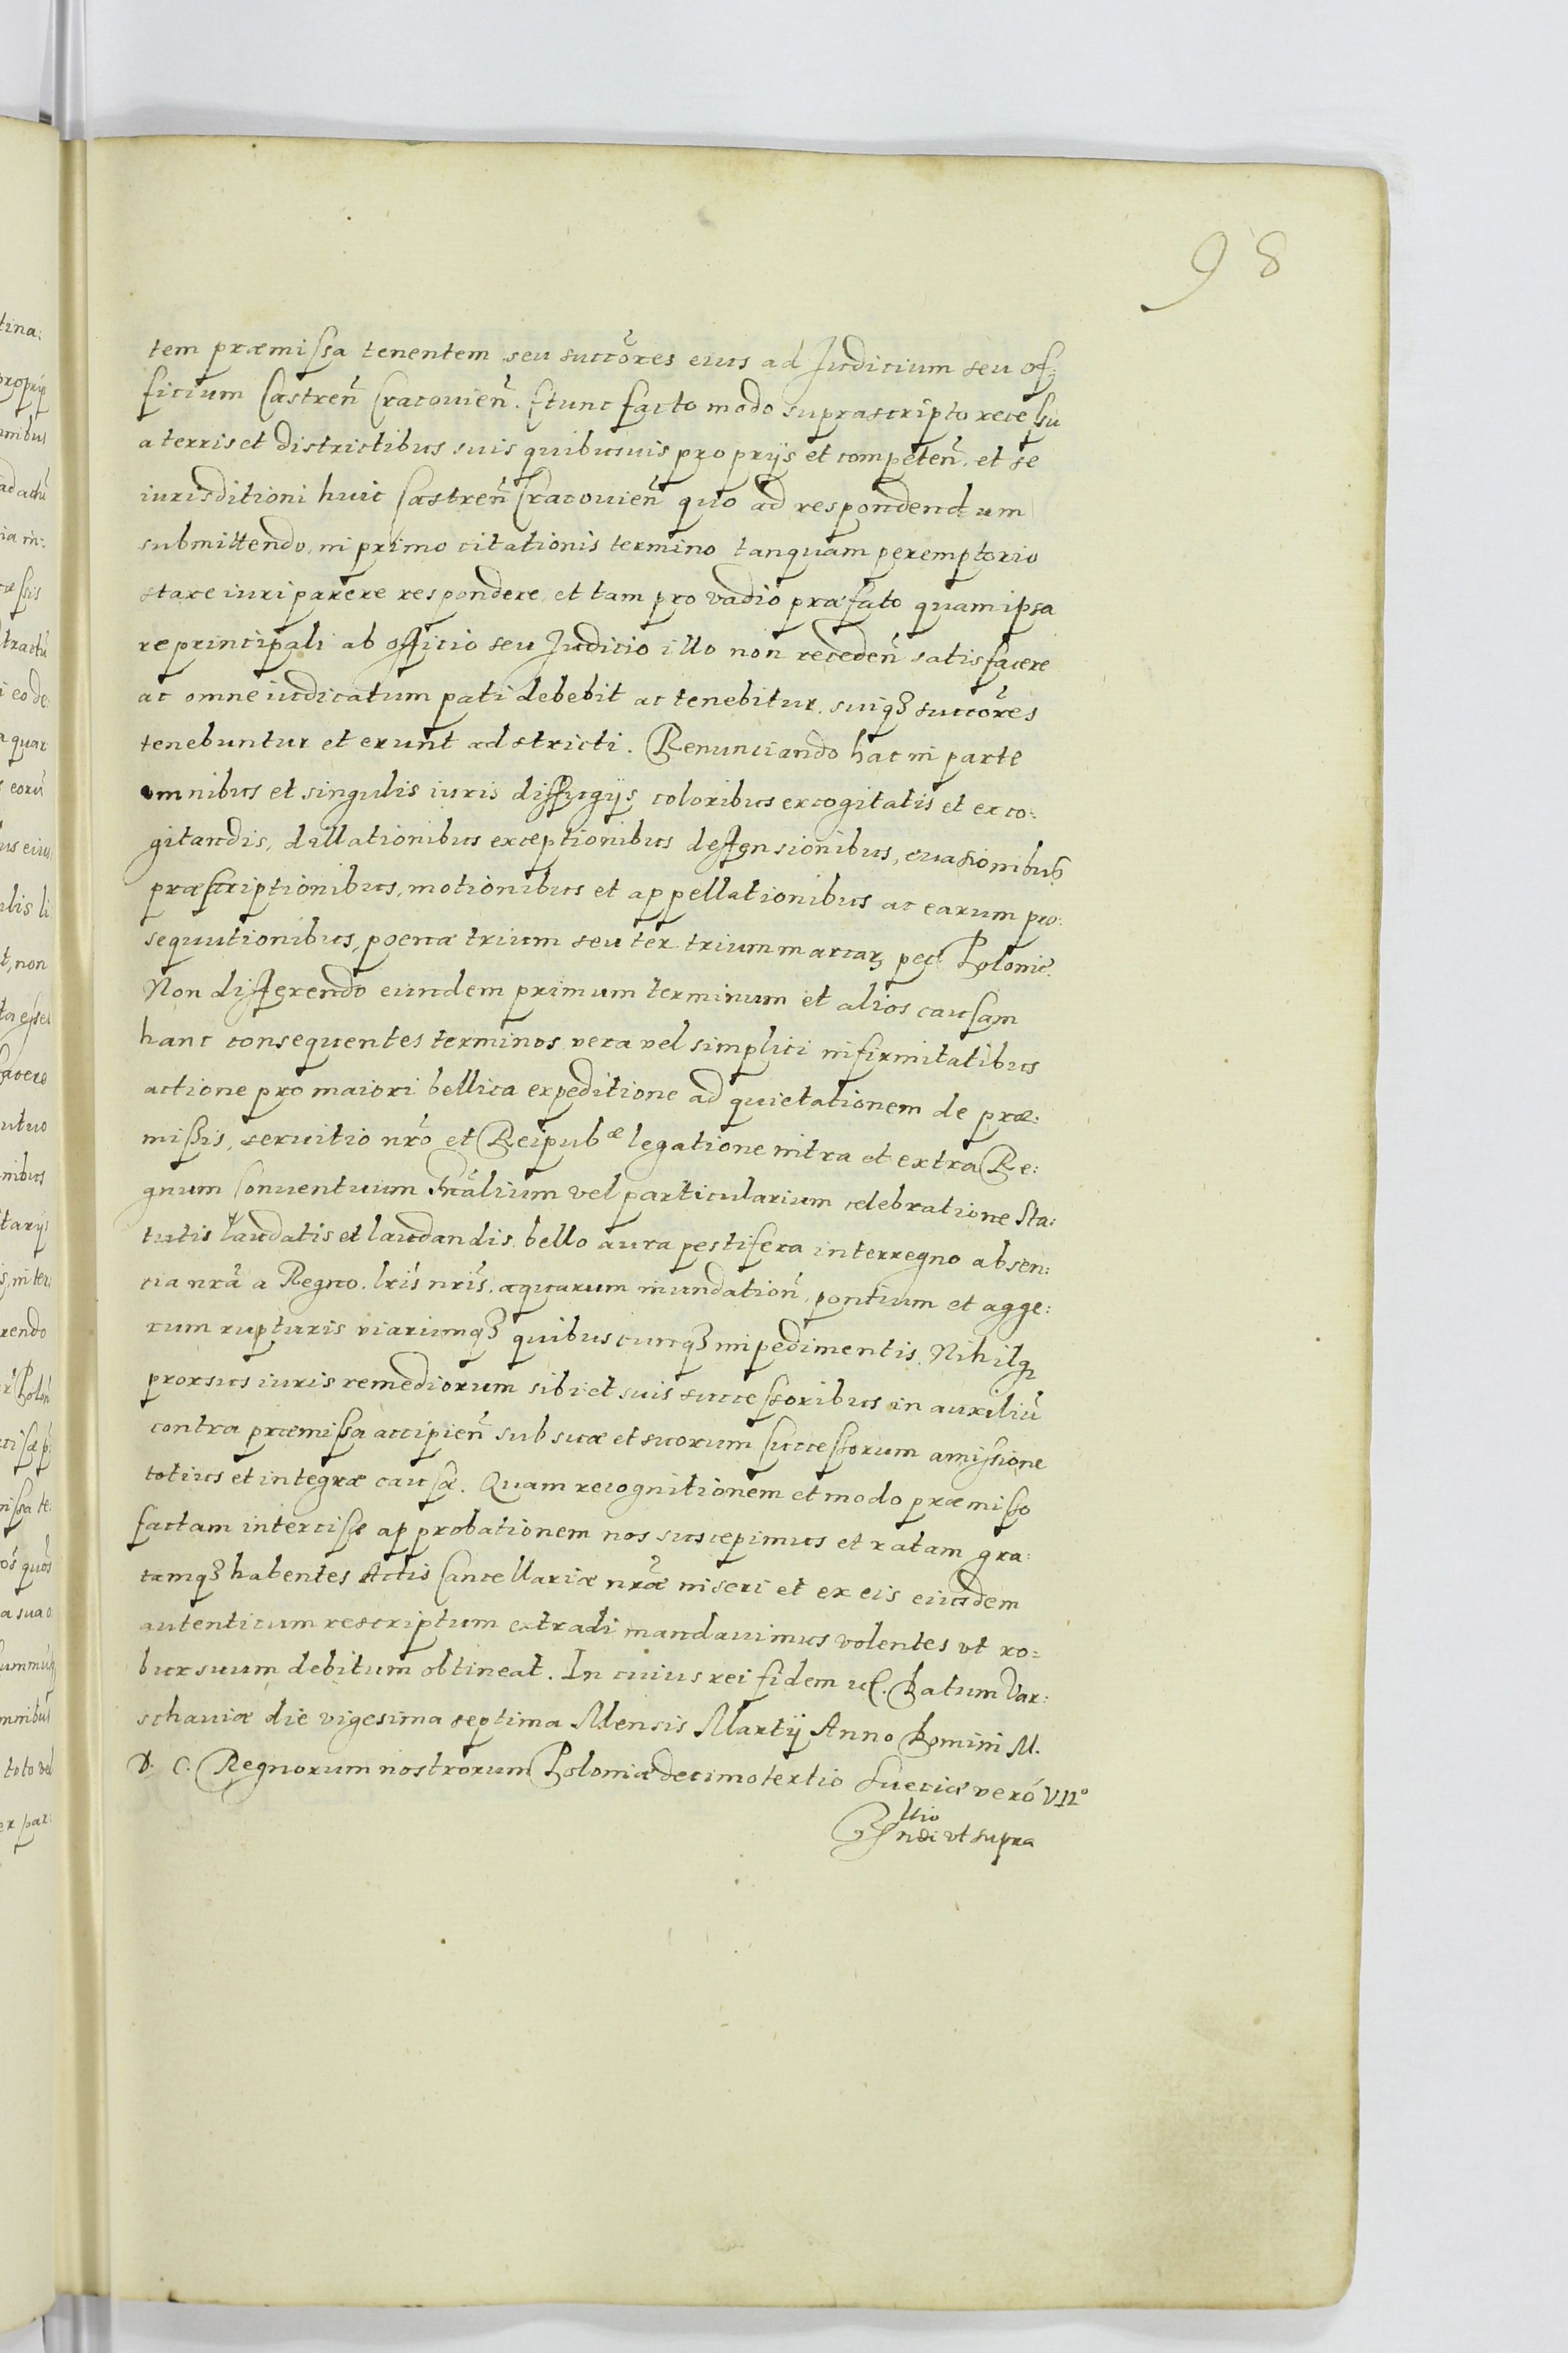 98
tem præmissa tenentem seu succōres eius ad Judicium seu of:
ficium Castreñ Cracouieñ. Et tunc facto modo suprascripto recessu
a terris et districtibus suis quibusuis proprijs et competeñ. et se
iurisditioni huic Castreñ Cracouieñ quo ad respondendum
submittendo, in primo citationis termino tanquam peremptorio
stare iuri parere respondere, et tam pro vadio præfato quam ipsa
re principali ab officio seu Judicio illo non recedeñ satisfacere
ac omne iudicatum pati debebit ac tenebitur. suiqꝫ succōres
tenebuntur et erunt adstricti. Renunciando hac in parte
omnibus et singulis iuris diffugijs coloribus excogitatis et exco:
gitandis, dillationibus exceptionibus deffensionibus, euasionibus
præscriptionibus, motionibus et appellationibus ac earum pro:
sequutionibus, poenæ trium seu ter trium marcarꝫ pec: Polonic.
Non differendo eundem primum terminum et alios causam
hanc consequentes terminos vera vel simplici infirmitatibus
actione pro maiori bellica expeditione ad quietationem de præ:
missis, seruitio nr̃o et Reipubᵃᵉ legatione intra et extra Re:
gnum Conuentuum Gñalium vel particularium celebratione Sta:
tutis laudatis et laudandis. bello aura pestifera interregno absen:
tia nr̃a a Regno. lr̃is nr̃is. aquarum inundatioñ, pontium et agge:
rum rupturis viarumqꝫ quibuscunqꝫ impedimentis. Nihilqꝫ
prorsus iuris remediorum sibi et suis successoribus in auxiliū
contra præmissa accipieñ sub suæ et suorum successorum amissione
totius et integræ causæ. Quam recognitionem et modo præmisso
factam intercisæ approbationem nos suscepimus et ratam gra:
tamqꝫ habentes Actis Cancellariæ nr̃æ inseri et ex eis eiusdem
autenticum rescriptum extradi mandauimus volentes vt ro:
bur suum debitum obtineat. In cuius rei fidem Datum Var:
schauiæ die vigesima septima Mensis Martij Anno Domini M.
D. C. Regnorum nostrorum Poloniæ decimotertio Sueciæ veró VII°
vt supra